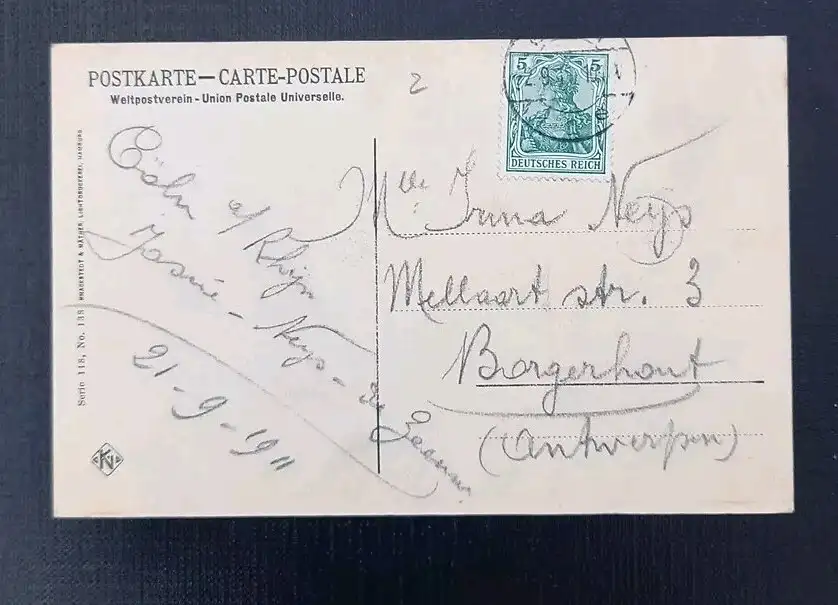 POSTKARTE — CARTE-POSTALE
Weltpostverein - Union Postale Universelle.
2
5 5
DEUTSCHES REICH
Serie 118, No. 138 KNACKSTEDT & NÄTHER, LICHTDRUCKEREI, HAMBURG
Cöln
a/ Rhijn
Neys -
21-9-1911
Mlle Irma Neys
Mellaert str. 3
Borgerhout
(Antwerpen)